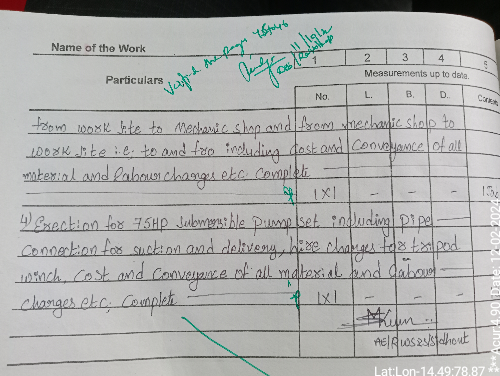 Name of the Work
Verified the page
1 2 3 4 5
Particulars
Measurements up to date.
No. L. B. D. Conten
from work site to Mechanic shop and from mechanic shop to
work site i.e; to and fro including cost and conveyance of all
material and labour charges etc complete
1X1 - - -
4) Erection for 75HP submersible pump set including pipe
connection for suction and delivery, hire charges for tripod
winch, cost and conveyance of all material and labour
charges etc; complete
1X1 - - -
AE/RWS&S/Sidhout
Lat:Lon-14.49:78.87